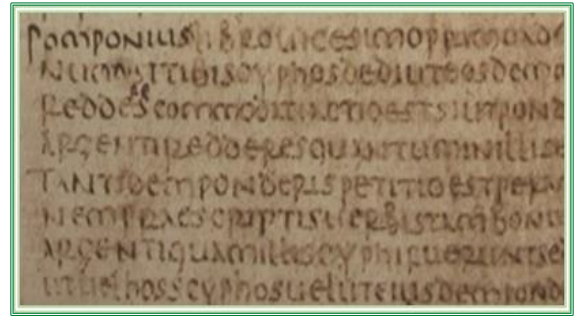 POMPONIUS LIBRO UICESIMOPRIMOAD
NUMSITIBISCYPHOSDEDIUTEOSDEM
REDDERESCOMMODATIACTIOESTSIUTPOND
ARGENTIREDDERESQUANTUMINILLISE
TANTIDEMPONDERISPETITIOESTPERA
NEMPRAESCRIPTISUERBISTAMBONI
ARGENTIQUAMILLISCYPHIFUERUNTSE
UTUELHOSSCYPHOSUELUTEIUSDEMPOND